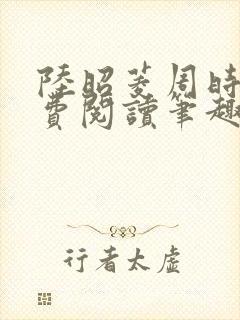 陸昭菱周時
費閱讀筆趣
行者太虛